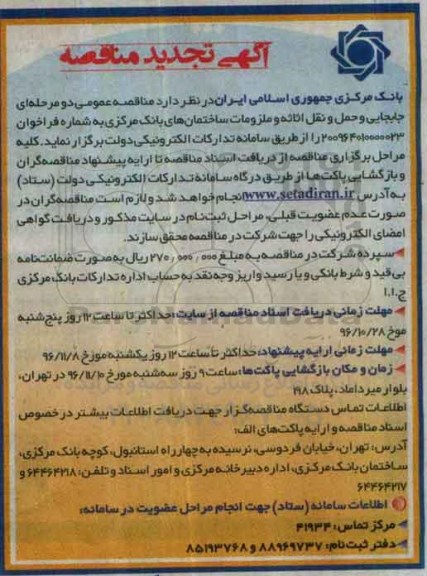 آگهی تجدید مناقصه
بانک مرکزی جمهوری اسلامی ایران در نظر دارد مناقصه عمومی دو مرحله‌ای
جابجایی و حمل و نقل اثاثه و ملزومات ساختمان‌های بانک مرکزی به شماره فراخوان
۲۰۰۹۶۴۰۱۰۰۰۰۰۲۳ را از طریق سامانه تدارکات الکترونیکی دولت برگزار نماید. کلیه
مراحل برگزاری مناقصه از دریافت اسناد مناقصه تا ارایه پیشنهاد مناقصه‌گران
و بازگشایی پاکت‌ها از طریق درگاه سامانه تدارکات الکترونیکی دولت (ستاد)
به آدرس www.setadiran.ir انجام خواهد شد و لازم است مناقصه‌گران در
صورت عدم عضویت قبلی، مراحل ثبت‌نام در سایت مذکور و دریافت گواهی
امضای الکترونیکی را جهت شرکت در مناقصه محقق سازند.
سپرده شرکت در مناقصه به مبلغ ۲۷۰٫۰۰۰٫۰۰۰ ریال به صورت ضمانت‌نامه
بی قید و شرط بانکی و یا رسید واریز وجه نقد به حساب اداره تدارکات بانک مرکزی
ج.ا.ا
مهلت زمانی دریافت اسناد مناقصه از سایت: حداکثر تا ساعت ۱۲ روز پنج‌شنبه
مورخ ۹۶/۱۰/۲۸
مهلت زمانی ارایه پیشنهاد: حداکثر تا ساعت ۱۲ روز یکشنبه مورخ ۹۶/۱۱/۸
زمان و مکان بازگشایی پاکت‌ها: ساعت ۹ روز سه‌شنبه مورخ ۹۶/۱۱/۱۰ در تهران،
بلوار میرداماد، پلاک ۱۹۸
اطلاعات تماس دستگاه مناقصه‌گزار جهت دریافت اطلاعات بیشتر در خصوص
اسناد مناقصه و ارایه پاکت‌های الف:
آدرس: تهران، خیابان فردوسی، نرسیده به چهارراه استانبول، کوچه بانک مرکزی،
ساختمان بانک مرکزی، اداره دبیرخانه مرکزی و امور اسناد و تلفن: ۶۴۴۶۴۲۱۸ و
۶۴۴۶۴۲۱۷
اطلاعات سامانه (ستاد) جهت انجام مراحل عضویت در سامانه:
مرکز تماس: ۴۱۹۳۴
دفتر ثبت‌نام: ۸۸۹۶۹۷۳۷ و ۸۵۱۹۳۷۶۸